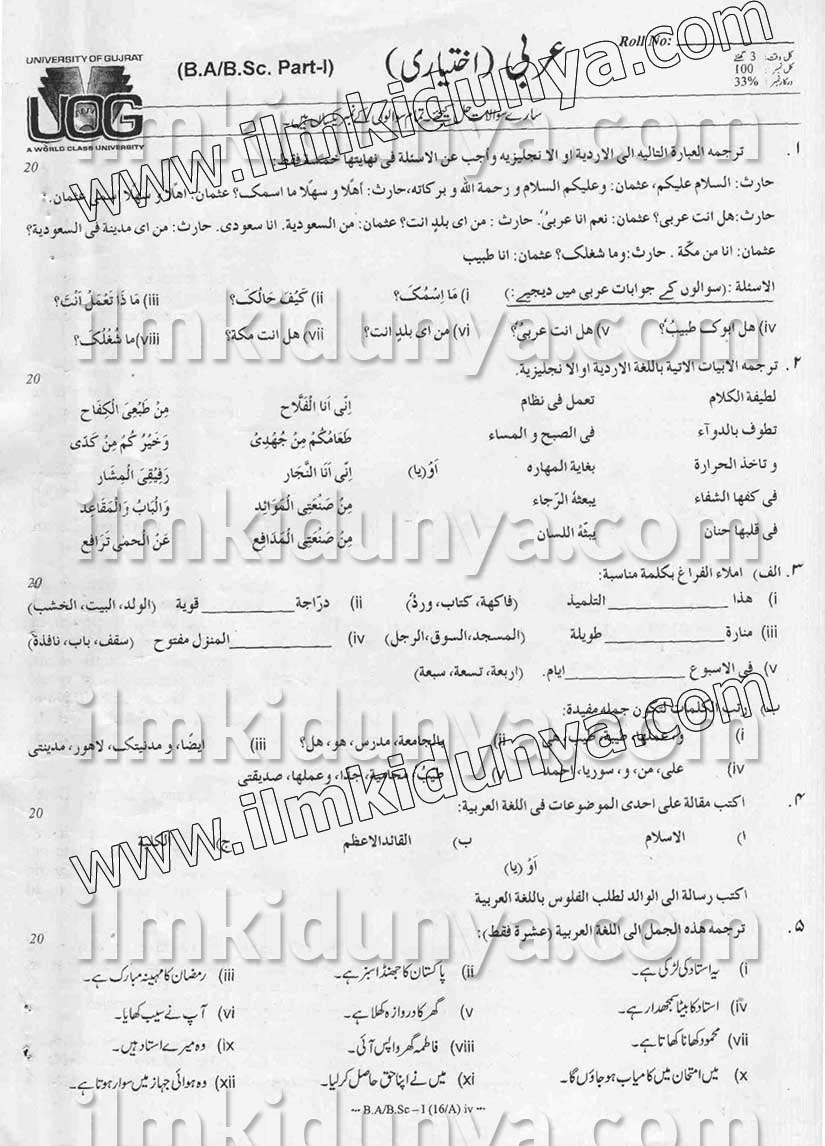 UNIVERSITY OF GUJRAT
UOG
A WORLD CLASS UNIVERSITY
(B.A/B.Sc. Part-I)
عربی (اختیاری)
Roll No:
کل وقت: 3 گھنٹے
کل نمبر: 100
درکار نمبر: 33%
سارے سوالات حل کیجئے۔ تمام سوالوں کے نمبر یکساں ہیں۔
۱. ترجمه العبارة التاليه الى الاردية او الا نجليزيه وأجب عن الاسئلة فى نهايتها خمسة فقط: 20
حارث: السلام عليكم، عثمان: وعليكم السلام و رحمة الله و بركاته، حارث: أهلًا و سهلًا ما اسمك؟ عثمان: اهلًا و سهلًا اسمى عثمان.
حارث: هل انت عربى؟ عثمان: نعم انا عربىٌ. حارث : من اى بلدٍ انت؟ عثمان: من السعودية. انا سعودى. حارث: من اى مدينة فى السعودية؟
عثمان: انا من مكّة . حارث: وما شغلك؟ عثمان: انا طبيب
الاسئلة : (سوالوں کے جوابات عربی میں دیجیے:) i) مَا اِسْمُكَ؟ ii) كَيْفَ حَالُكَ؟ iii) مَا ذَا تَعْمَلُ اَنْتَ؟
iv) هل ابوك طبيبٌ؟ v) هل انت عربىٌ؟ vi) من اى بلدٍ انت؟ vii) هل انت مكة؟ viii) ما شُغْلُكَ؟
۲. ترجمه الابيات الاتية باللغة الاردية اوالا نجليزية. 20
لطيفة الكلام تعمل فى نظام اِنِّى اَنا الْفَلَّاح مِنْ طَبْعِىَ الْكِفَاح
تطوف بالدوآء فى الصبح و المساء طَعَامُكُمْ مِنْ جُهْدِىْ وَ خَيْرُ كُمْ مِنْ كَدِّى
و تاخذ الحرارة بغاية المهاره اَوْ (یا) اِنِّى اَنَا النَّجَار رَفِيْقِىَ الْمِشَار
فى كفها الشفاء يبعثهُ الرّجاء مِنْ صَنْعَتِى الْمَوَائِد وَالْبَابُ وَالْمَقَاعِد
فى قلبها حنان يبثّه اللسان مِنْ صَنْعَتِى الْمَدَافِع عَنْ الْحِمٰى تَرَافِع
۳. الف) املاء الفراغ بكلمة مناسبة: 20
i) هذا ____ التلميذ (فاكهة، كتاب، وردٌ) ii) درّاجة ____ قوية (الولد، البيت، الخشب)
iii) منارة ____ طويلة (المسجد، السوق، الرجل) iv) ____ المنزل مفتوح (سقف، باب، نافذة)
v) فى الاسبوع ____ ايام. (اربعة، تسعة، سبعة)
ب) رتب الكلمات لتكون جمله مفيدة:
i) وعملها، طيبة، طيب، هى ii) بالجامعة، مدرس، هو، هل؟ iii) ايضًا، و مدنيتك، لاهور، مدينتى
iv) على، من، و، سوريا، احمد v) طيبٌ، محامية، جدًا، وعملها، صديقتى
۴. اكتب مقالة على احدى الموضوعات فى اللغة العربية: 20
ا) الاسلام ب) القائد الاعظم ج) الكلية
اَوْ (یا)
اكتب رسالة الى الوالد لطلب الفلوس باللغة العربية
۵. ترجمه هذه الجمل الى اللغة العربية (عشرة فقط): 20
i) یہ استاد کی لڑکی ہے۔ ii) پاکستان کا جھنڈا سبز ہے۔ iii) رمضان کا مہینہ مبارک ہے۔
iv) استاد کا بیٹا سمجھدار ہے۔ v) گھر کا دروازہ کھلا ہے۔ vi) آپ نے سیب کھایا۔
vii) محمود کھانا کھاتا ہے۔ viii) فاطمہ گھر واپس آئی۔ ix) وہ میرے استاد ہیں۔
x) میں امتحان میں کامیاب ہو جاؤں گا۔ xi) میں نے اپنا حق حاصل کر لیا۔ xii) وہ ہوائی جہاز میں سوار ہوتا ہے۔
--- B.A/B.Sc – I (16/A) iv ---
www.ilmkidunya.com
ilmkidunya.com
ilmkidunya.com
www.ilmkidunya.com
ilmkidunya.com
ilmkidunya.com
ilmkidunya.com